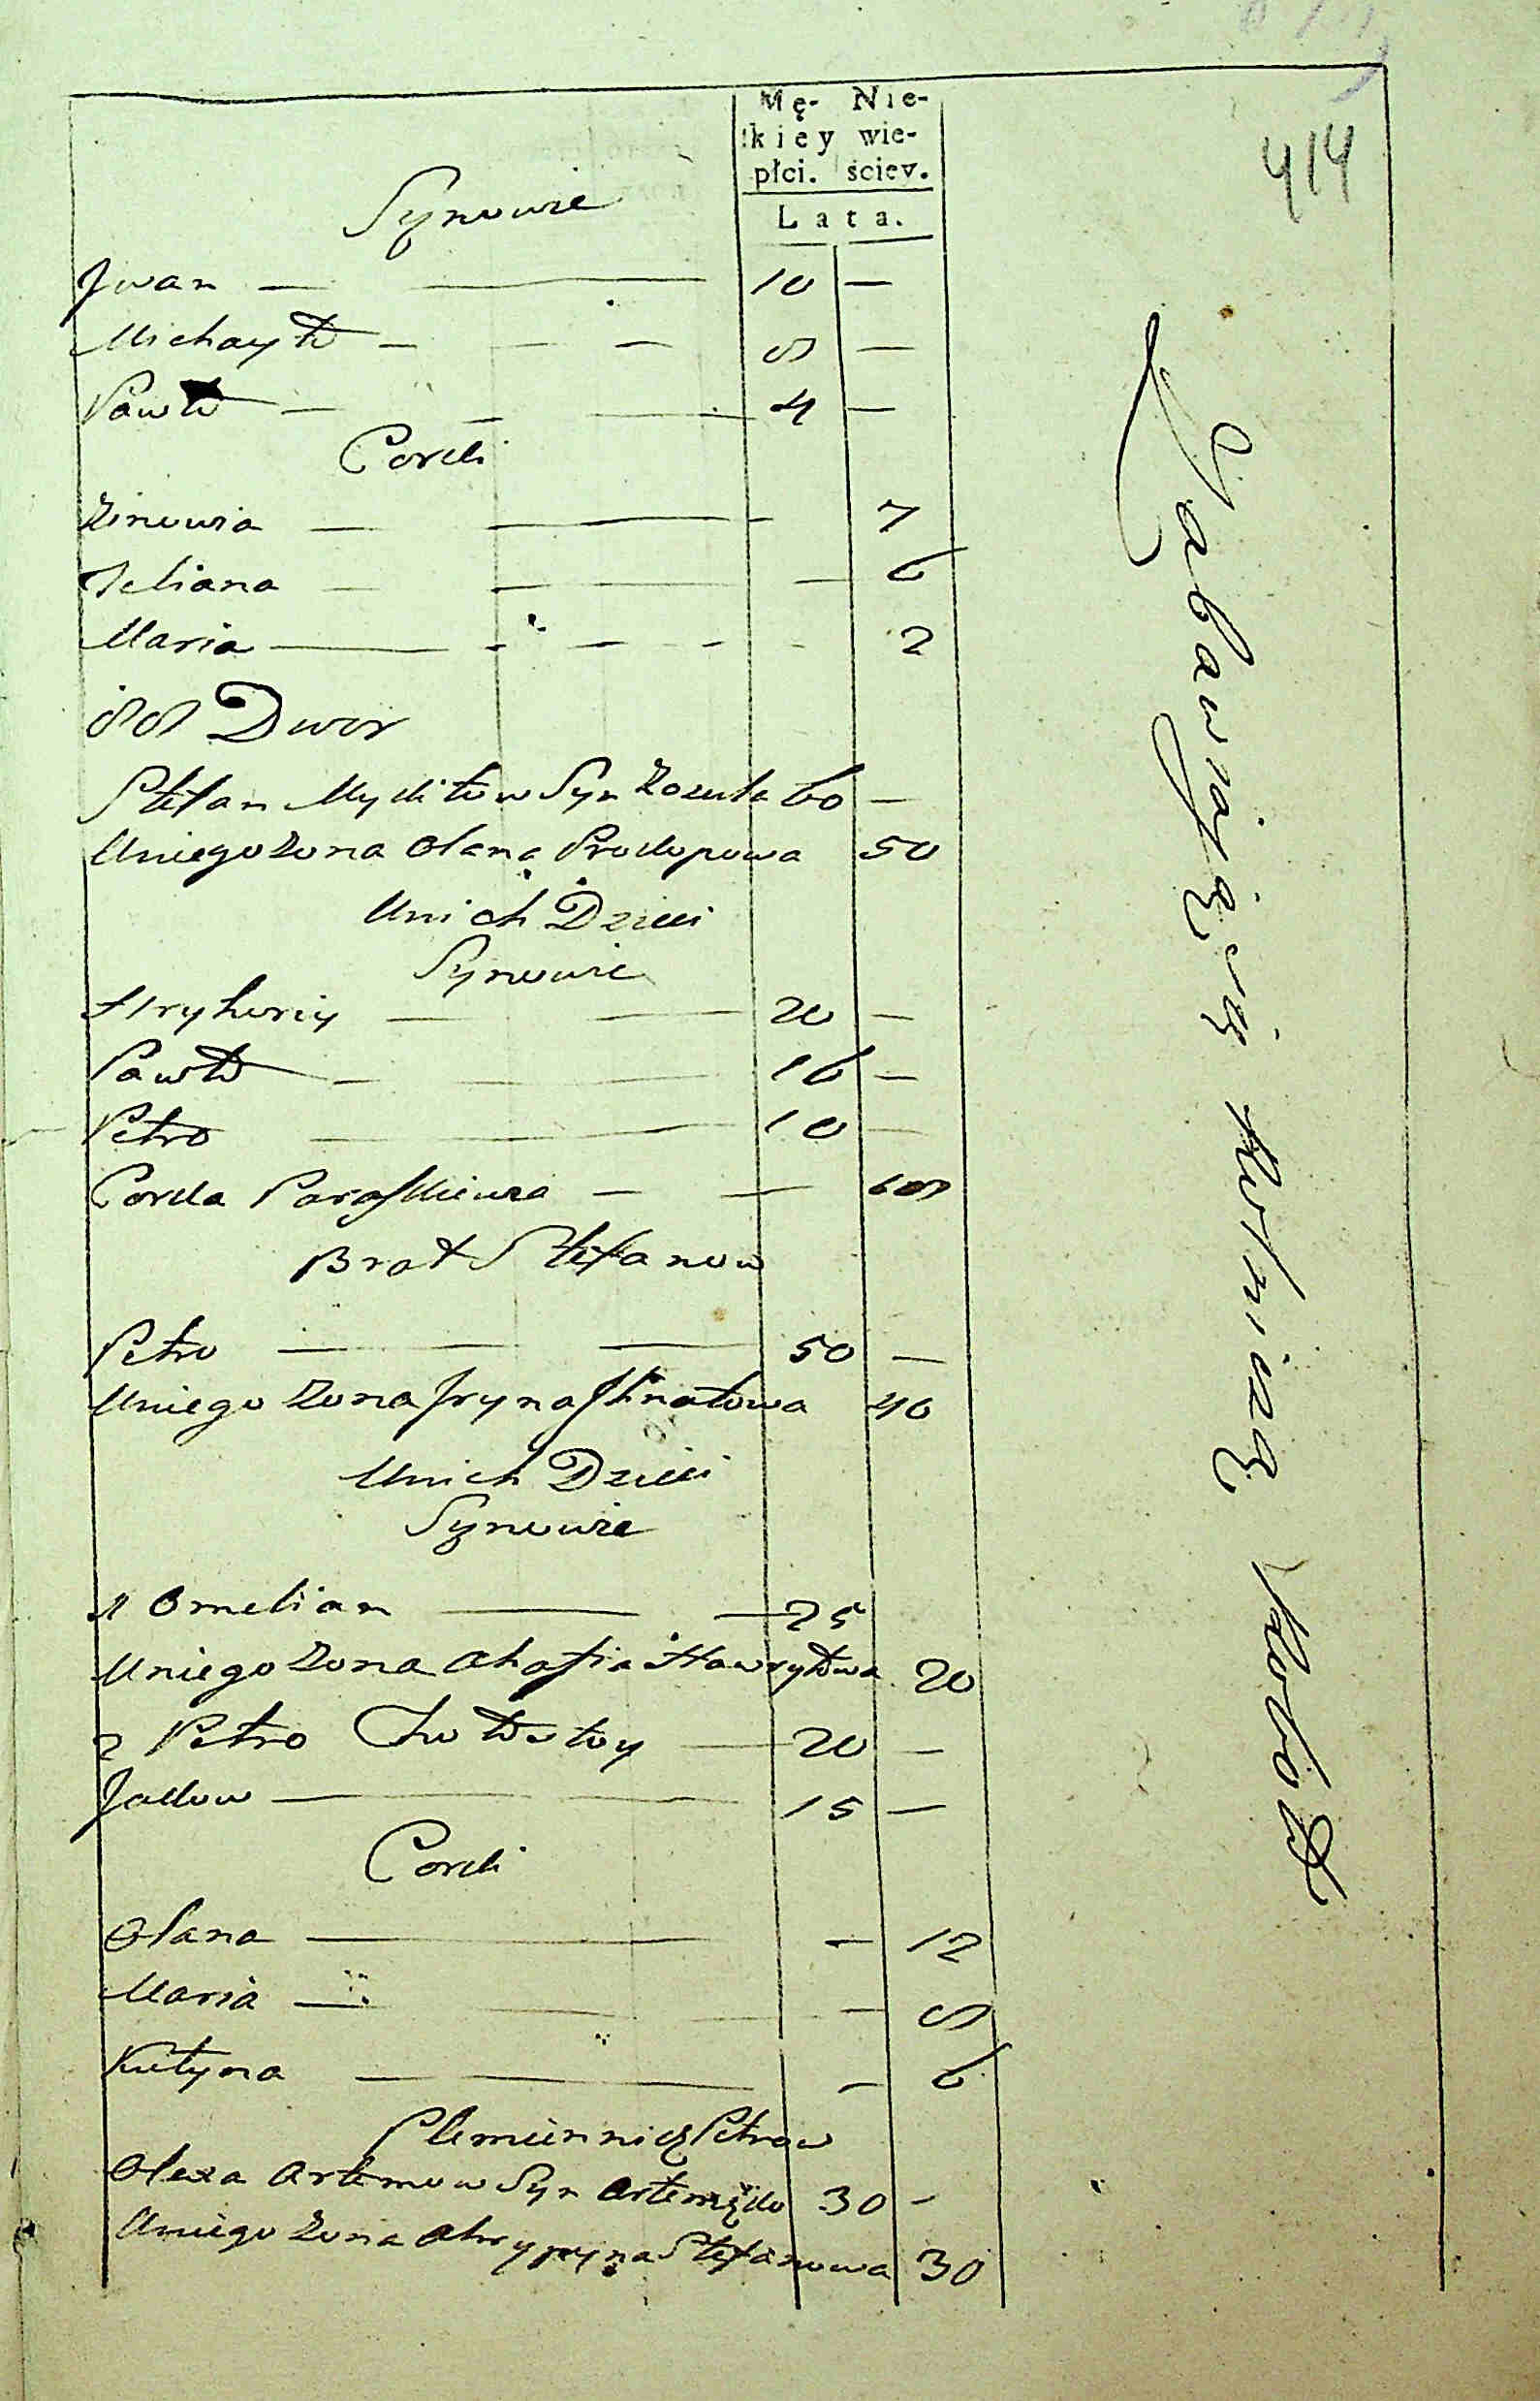 414
Mę- Nie-
skiey wie-
płci. sciey.
Lata.
Synowie
Jwan — — 10 —
Michayło — — — 8 —
Pawło — — — 4 —
Corki
Zinowia — — - 7
Jeliana — — — 6
Maria — - - - - 2
88 Dwor
Stefan Mykitow Syn Zozula 60 —
Uniego Zona Olana Prokopowa 50
Unich Dzieci
Synowie
Hryhoriy — — 20 —
Pawło — — — 16 —
Petro — — 10 —
Corka Paraskiewia — —
Brat Stefanow
Petro — — — 50 —
Uniego Zona Jryna Jhnatowa 40
Unich Dzieci
Synowie
1 Omelian — — 25
Uniego Zona Ahafia Hawryłowa 20
2 Petro — 20 —
Jakow — — 15 —
Corki
Olana — — 12
Maria — — — 8
Kulyna — — — 6
Plemiennicy Petrow
Olexa Artemow Syn Artemęko 30 -
Uniego Zona Ahrypyna Stefanowa 30